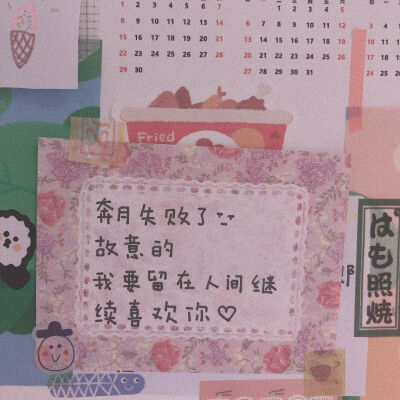 8 9 10 11 12 13 14
15 16 17 18 19 20 21
22 23 24 25 26 27 28
29 30
1 2 3 4 5
6 7 8 9 10 11 12
13 14 15 16 17 18 19
20 21 22 23 24 25 26
27 28 29 30 31
3 4
10 11
17 18
24 25
Fried
奔月失败了
故意的
我要留在人间继
续喜欢你♡
はも照焼